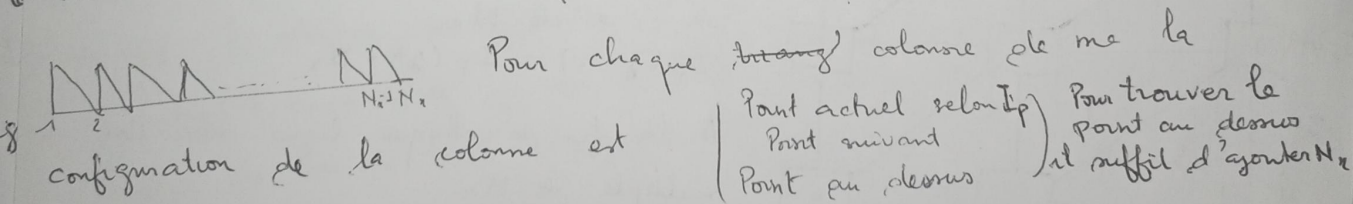 Pour chaque triang colonne de me la
1 2 ....... Ni-1 Nx
configuration de la colonne est
Point actuel selon Ip
Point suivant
Point au dessus
Pour trouver le
point au dessus
il suffit d'ajouter Nx